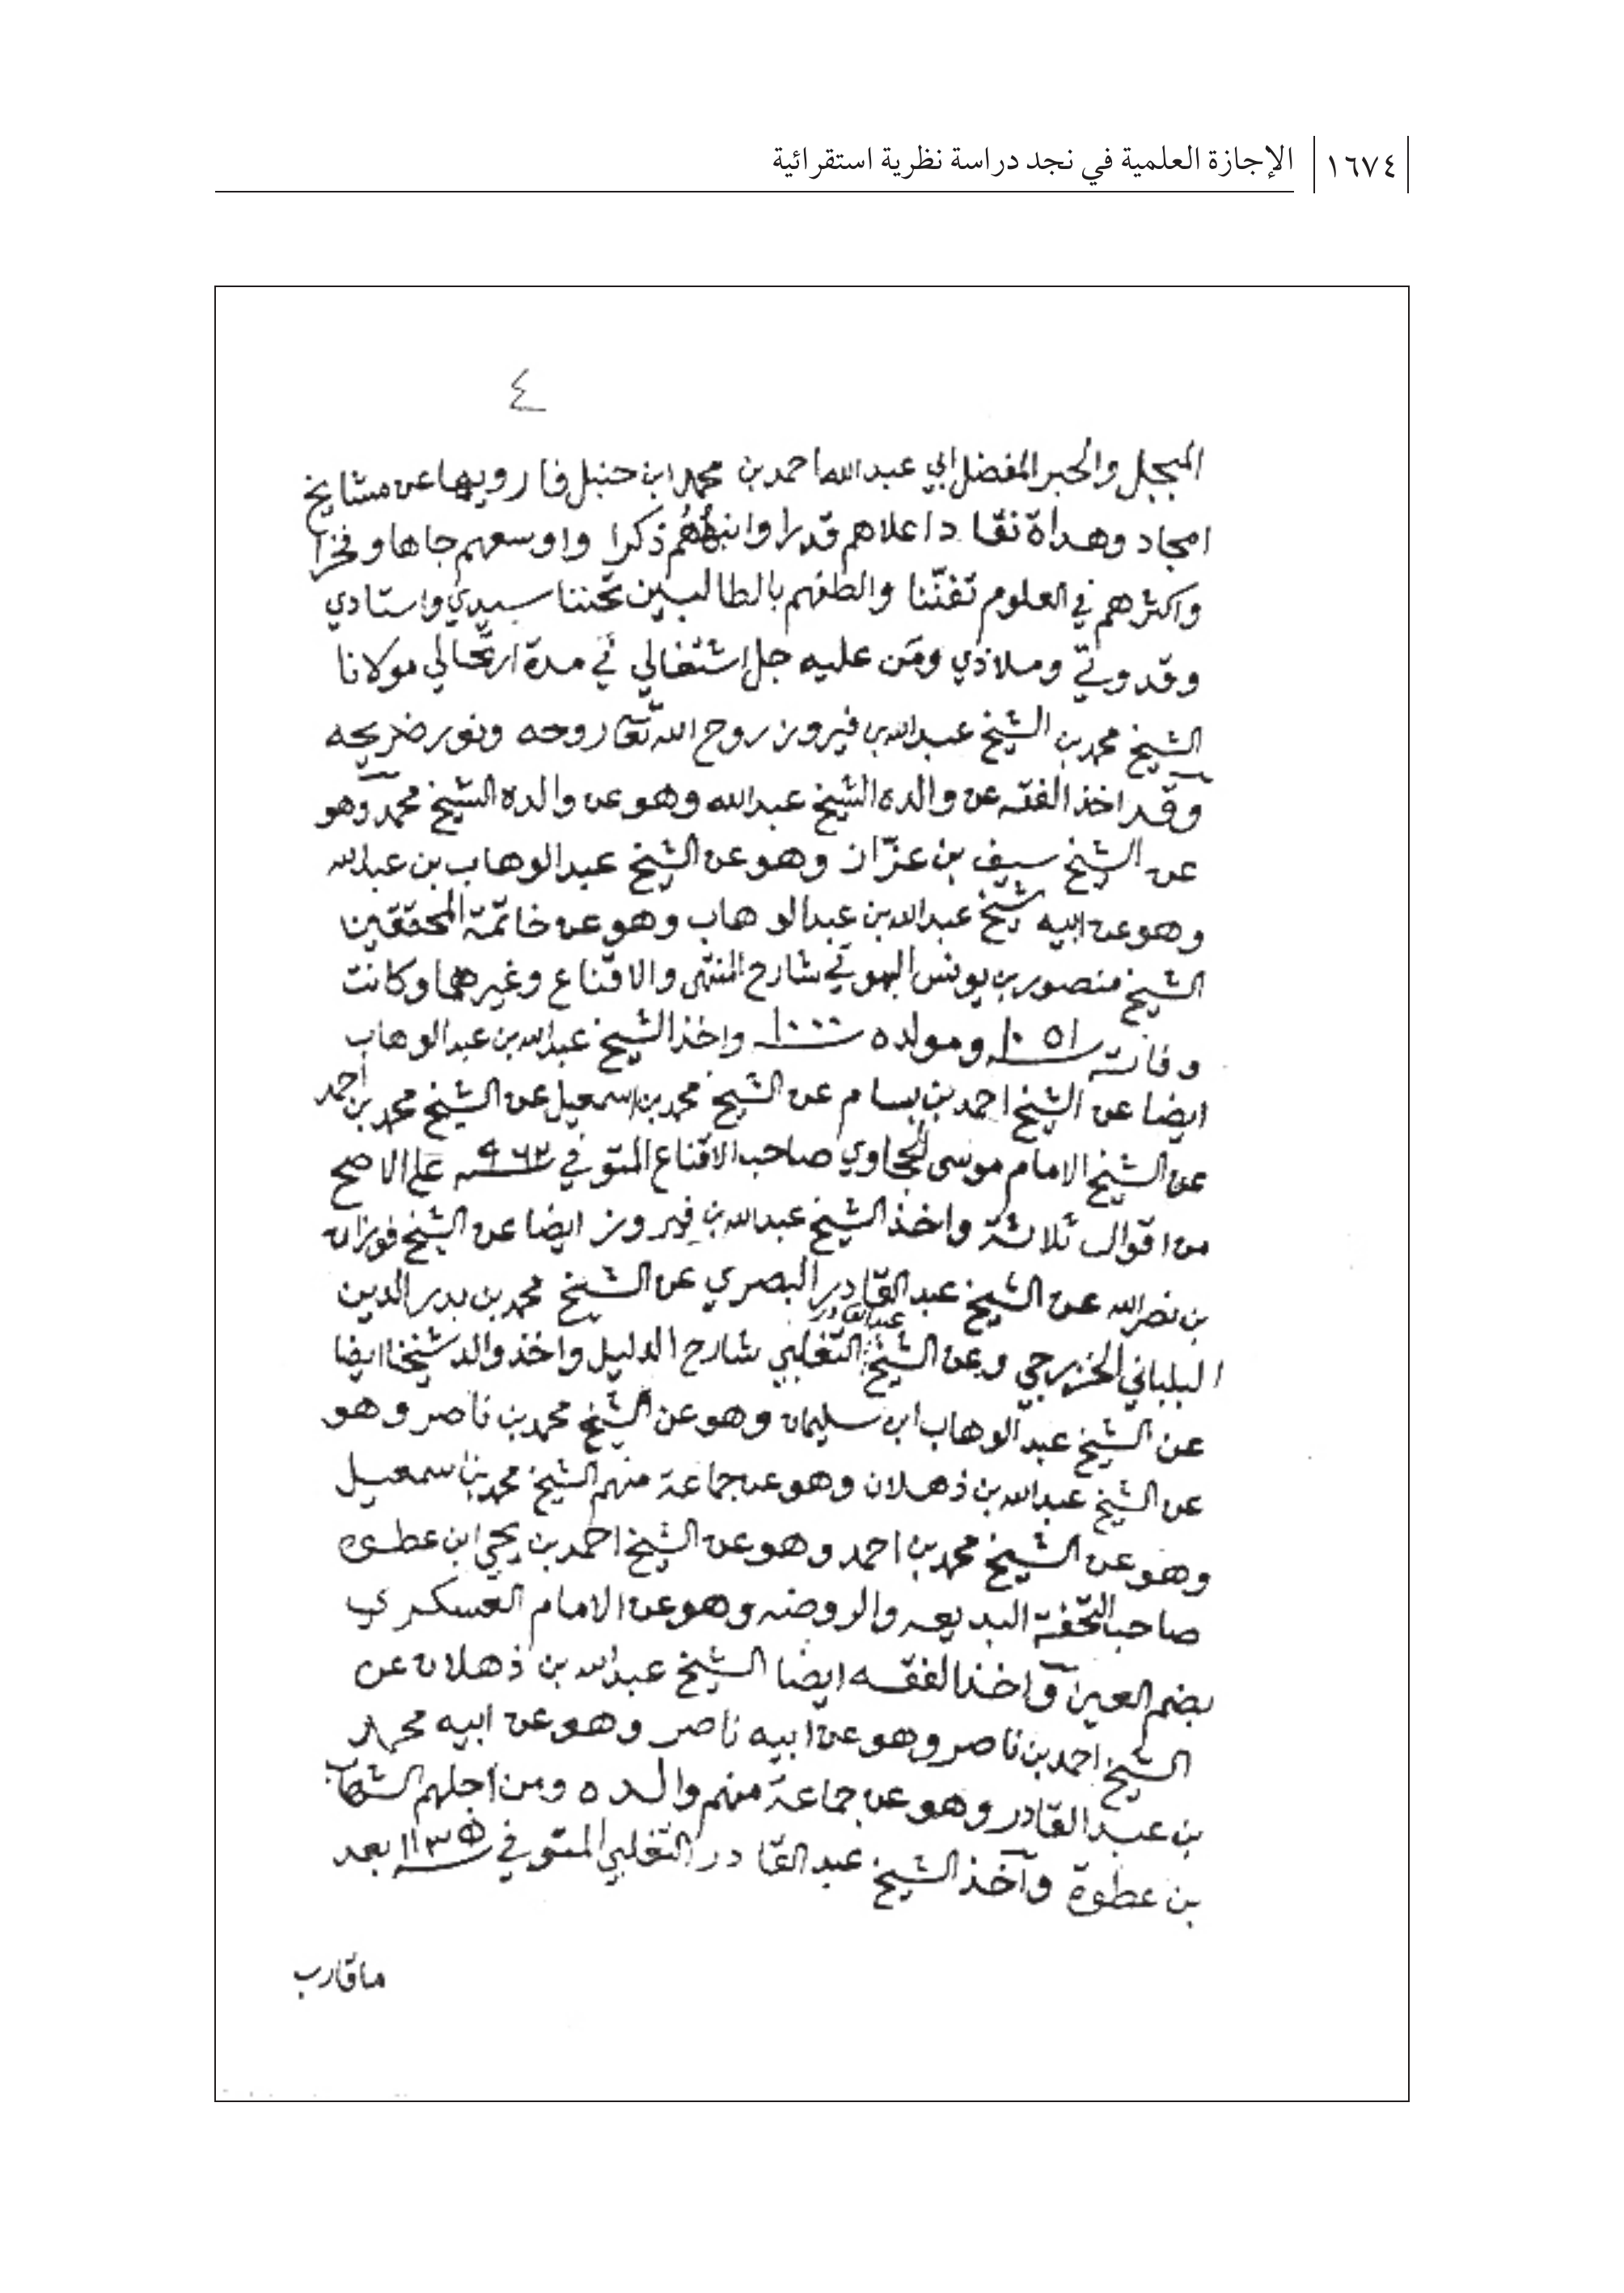 ١٦٧٤ الإجازة العلمية في نجد دراسة نظرية استقرائية
٤
المبجل والحبر المفضل ابي عبد الله احمد بن محمد ابن حنبل فارويها عن مشايخ
امجاد وهداة نقاد اعلاهم قدرا وانبههم ذكرا واوسعهم جاها وفخرا
واكثرهم في العلوم تفنّنا والطفهم بالطالبين تحننا سيدي واستادي
وقدوتي وملاذي ومَن عليه جل اشتغالي في مدة ارتحالي مولانا
الشيخ محمد بن الشيخ عبد الله بن فيروز روح الله تعالى روحه ونور ضريحه
وقد اخذ الفقه عن والده الشيخ عبد الله وهو عن والده الشيخ محمد وهو
عن الشيخ سيف بن عزّاز وهو عن الشيخ عبد الوهاب بن عبد الله
وهو عن ابيه شيخ عبد الله بن عبد الوهاب وهو عن خاتمة المحققين
الشيخ منصور بن يونس البهوتي شارح المنتهى والاقناع وغيرهما وكانت
وفاته سنة ١٠٥١ ومولده سنة ١٠٠٠ واخذ الشيخ عبد الله بن عبد الوهاب
ايضا عن الشيخ احمد بن بسام عن الشيخ محمد بن اسمعيل عن الشيخ محمد بن احمد
عن الشيخ الامام موسى الحجاوي صاحب الاقناع المتوفي سنة ٩٦٢ على الاصح
من اقوال ثلاثة واخذ الشيخ عبد الله بن فيروز ايضا عن الشيخ فوزان
بن نصر الله عن الشيخ عبد القادر البصري عن الشيخ محمد بن بدر الدين
البلباني الخزرجي وعن الشيخ عبد القادر التغلبي شارح الدليل واخذ والد شيخنا ايضا
عن الشيخ عبد الوهاب ابن سليمان وهو عن الشيخ محمد بن ناصر وهو
عن الشيخ عبد الله بن ذهلان وهو عن جماعة منهم الشيخ محمد بن اسمعيل
وهو عن الشيخ محمد بن احمد وهو عن الشيخ احمد بن يحيى ابن عطوه
صاحب التحفة البديعه والروضه وهو عن الامام العسكري
بضم العين واخذ الفقه ايضا الشيخ عبد الله بن ذهلان عن
الشيخ احمد بن ناصر وهو عن ابيه ناصر وهو عن ابيه محمد
بن عبد القادر وهو عن جماعة منهم والده ومن اجلهم الشهاب
بن عطوة واخذ الشيخ عبد القادر التغلبي المتوفي سنة ١١٣٥ بعد
ماقارب